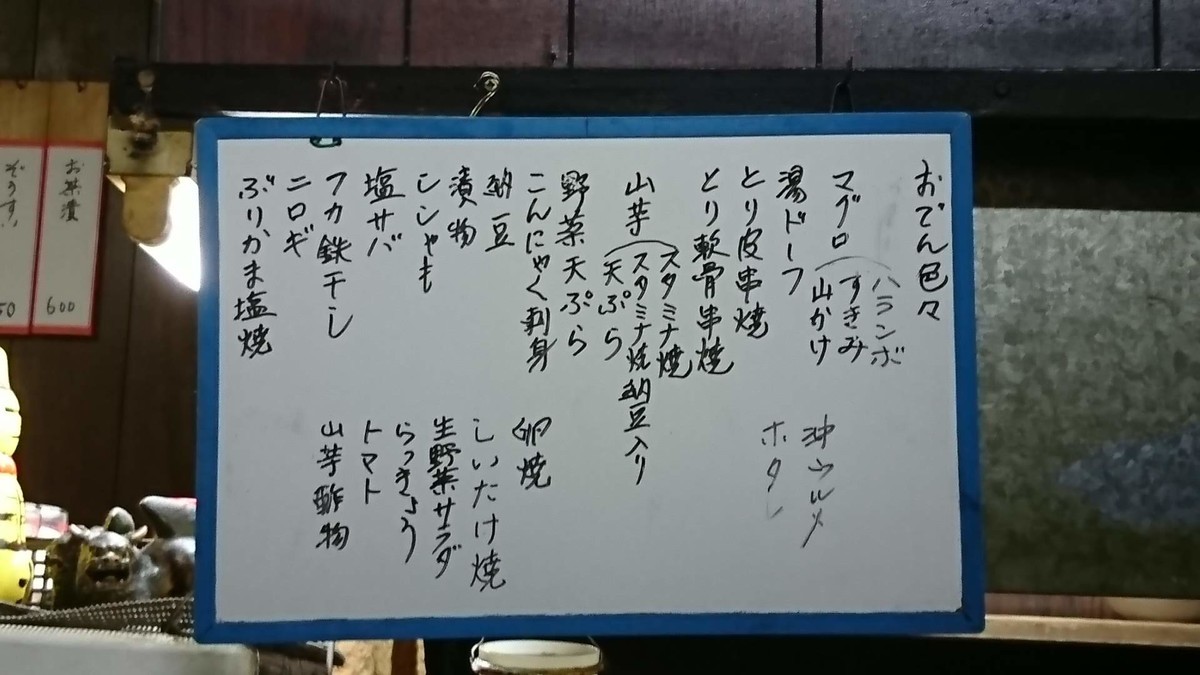 おでん色々
ハランボ
マグロ(すきみ
山かけ
湯ドーフ
とり皮串焼
とり軟骨串焼
スタミナ焼
山芋(スタミナ焼納豆入り
天ぷら
野菜天ぷら
こんにゃく刺身
納豆
漬物
シシャモ
塩サバ
フカ鉄干し
ニロギ
ぶりかま塩焼
沖ウルメ
卵焼
しいたけ焼
生野菜サラダ
らっきょう
トマト
山芋酢物
お茶漬
600
ぞうすい
50